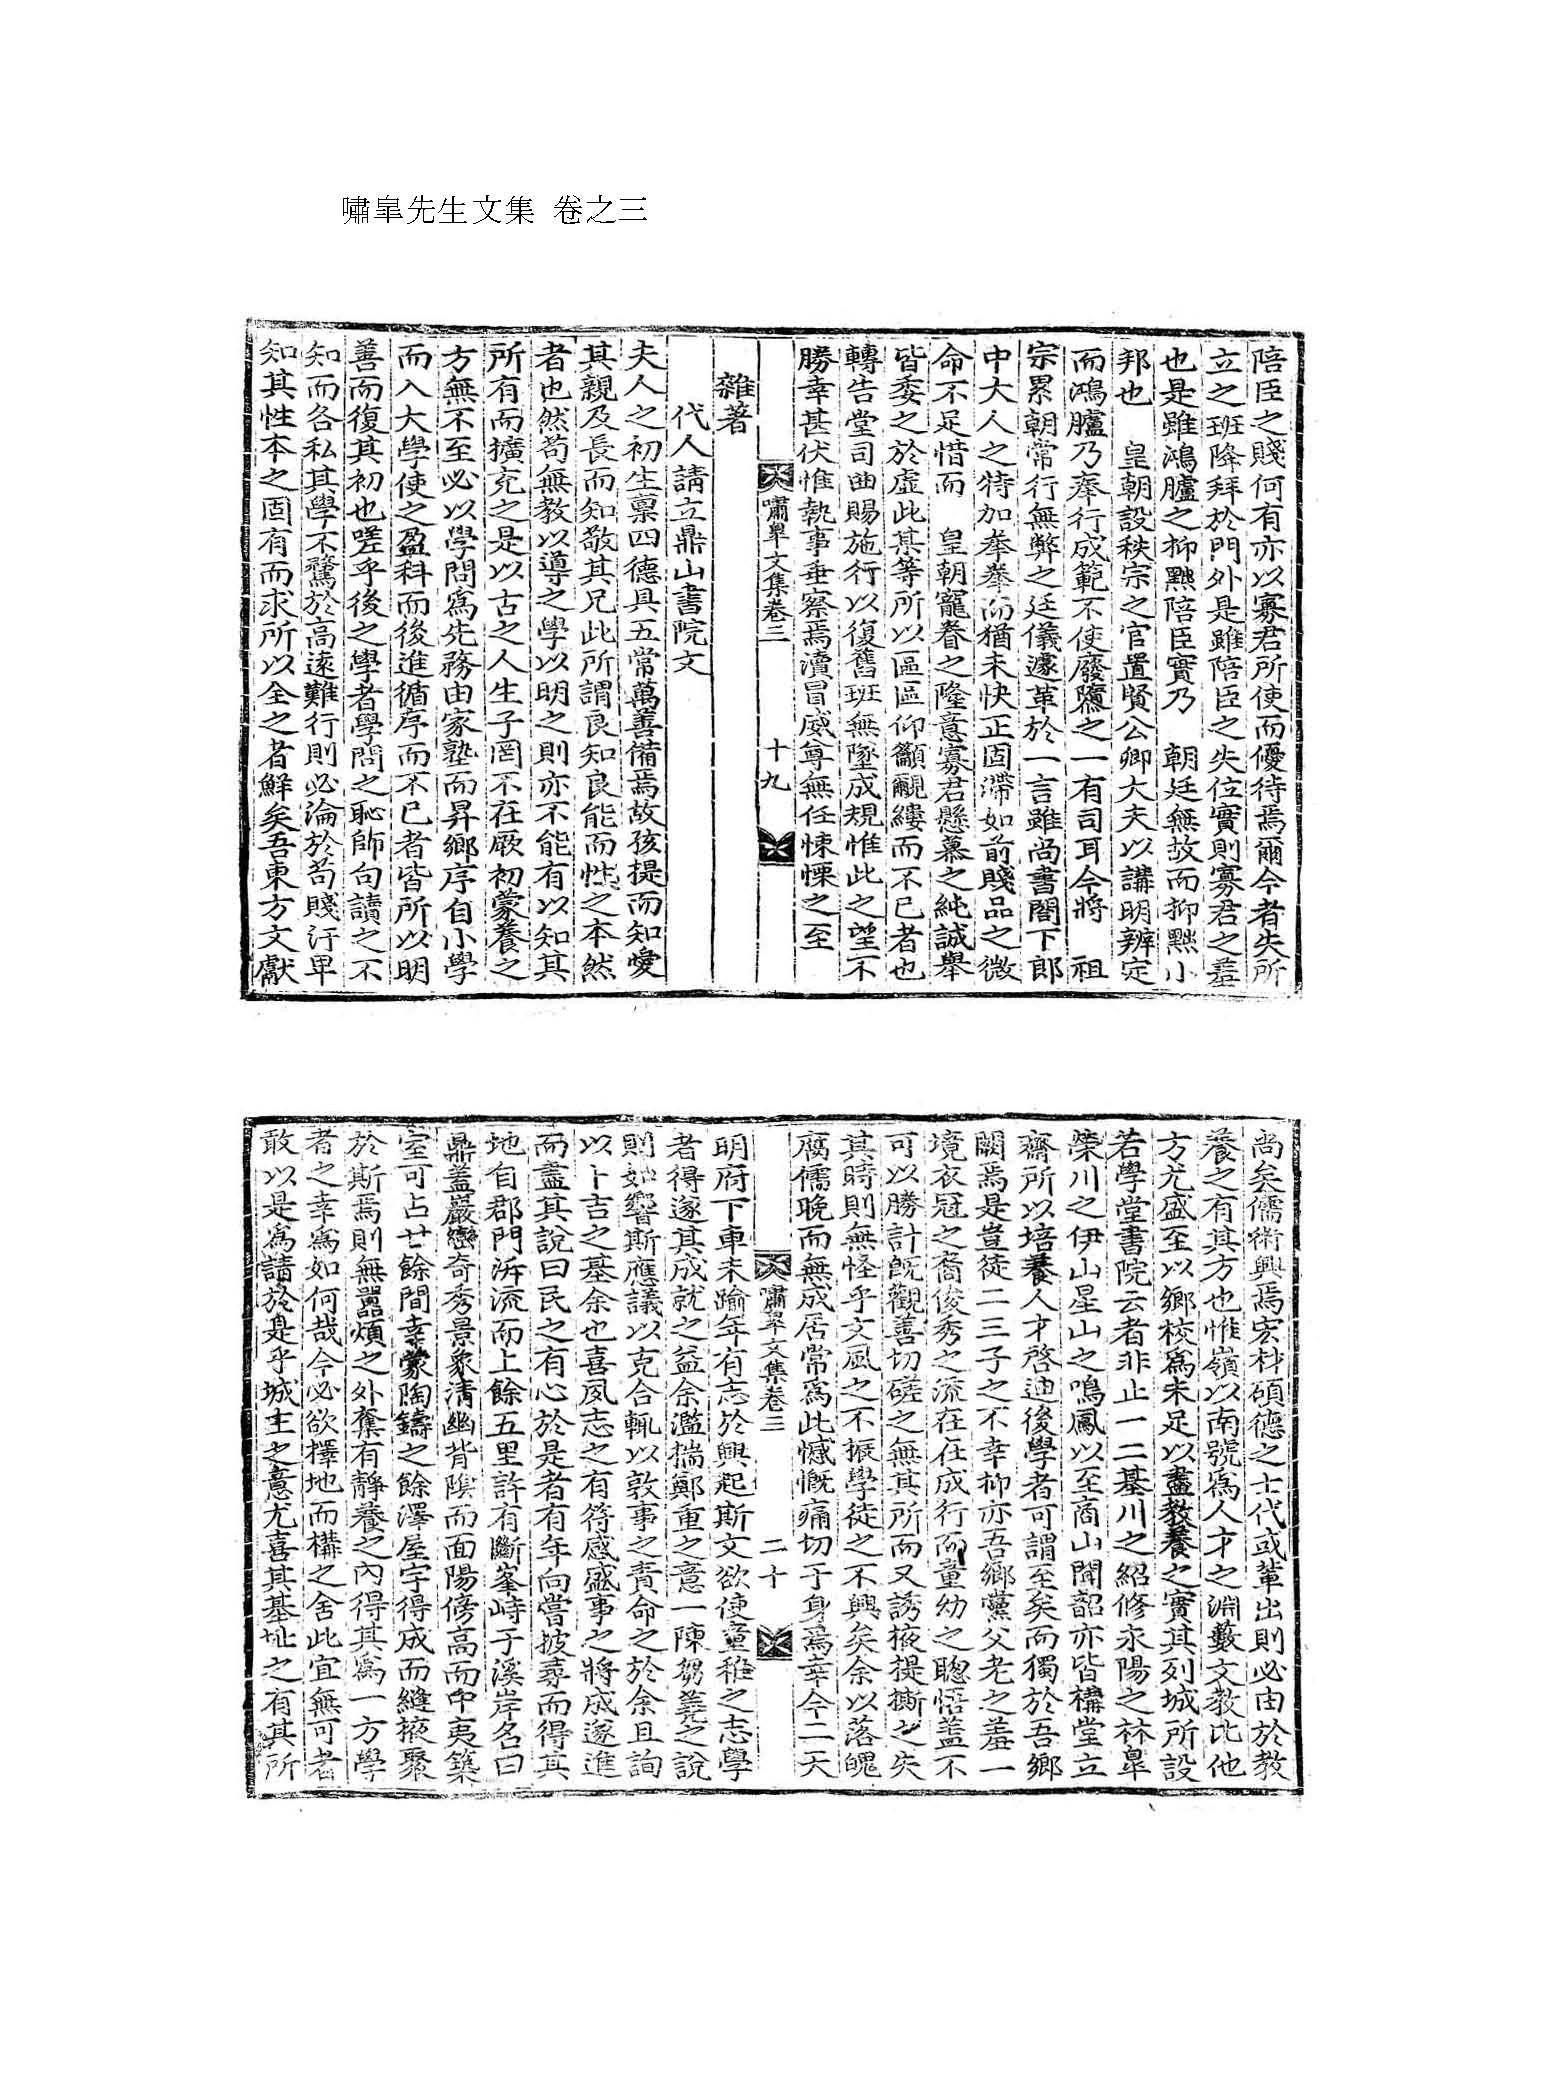 嘯皐先生文集 卷之三
陪臣之賤何有亦以寡君所使而優待焉爾今者失所
立之班降拜於門外是雖陪臣之失位實則寡君之羞
也是雖鴻臚之抑黜陪臣實乃 朝廷無故而抑黜小
邦也 皇朝設秩宗之官置賢公卿大夫以講明辨定
而鴻臚乃奉行成範不使廢隳之一有司耳今將 祖
宗累朝常行無弊之廷儀遽革於一言雖尚書閤下郎
中大人之特加拳拳而猶未快正固滯如前賤品之微
命不足惜而 皇朝寵眷之隆意寡君懸慕之純誠舉
皆委之於虛此某等所以區區仰籲覼縷而不已者也
轉告堂司曲賜施行以復舊班無墜成規惟此之望不
勝幸甚伏惟執事垂察焉瀆冒威尊無任悚慄之至
嘯皐文集卷三 十九
雜著
代人請立鼎山書院文
夫人之初生稟四德具五常萬善備焉故孩提而知愛
其親及長而知敬其兄此所謂良知良能而性之本然
者也然苟無教以導之學以明之則亦不能有以知其
所有而擴充之是以古之人生子罔不在厥初蒙養之
方無不至必以學問爲先務由家塾而昇鄉序自小學
而入大學使之盈科而後進循序而不已者皆所以明
善而復其初也嗟乎後之學者學問之恥師句讀之不
知而各私其學不騖於高遠難行則必淪於苟賤汙卑
知其性本之固有而求所以全之者鮮矣吾東方文獻
尚矣儒術興焉宏材碩德之士代或輩出則必由於教
養之有其方也惟嶺以南號爲人才之淵藪文教比他
方尤盛至以鄉校爲未足以盡教養之實其列城所設
若學堂書院云者非止一二基川之紹修永陽之林皐
榮川之伊山星山之鳴鳳以至商山聞韶亦皆構堂立
齋所以培養人才啓迪後學者可謂至矣而獨於吾鄉
闕焉是豈徒二三子之不幸抑亦吾鄉黨父老之羞一
境衣冠之裔俊秀之流在在成行而童幼之聰悟盖不
可以勝計旣觀善切磋之無其所而又誘掖提撕之失
其時則無怪乎文風之不振學徒之不興矣余以落魄
腐儒晚而無成居常爲此憾慨痛切于身焉幸今二天
嘯皐文集卷三 二十
明府下車未踰年有志於興起斯文欲使童稚之志學
者得遂其成就之益余濫揣鄭重之意一陳芻蕘之說
則如響斯應議以克合輒以敦事之責命之於余且詢
以卜吉之基余也喜夙志之有符感盛事之將成遂進
而盡其說曰民之有心於是者有年向嘗披尋而得其
地自郡門泝流而上餘五里許有斷峯峙于溪岸名曰
鼎蓋巖巒奇秀景象清幽背陰而面陽傍高而中夷築
室可占廿餘間幸蒙陶鑄之餘澤屋宇得成而縫掖聚
於斯焉則無囂煩之外奪有靜養之內得其爲一方學
者之幸爲如何哉今必欲擇地而構之舍此宜無可者
敢以是爲請於是乎城主之意尤喜其基址之有其所